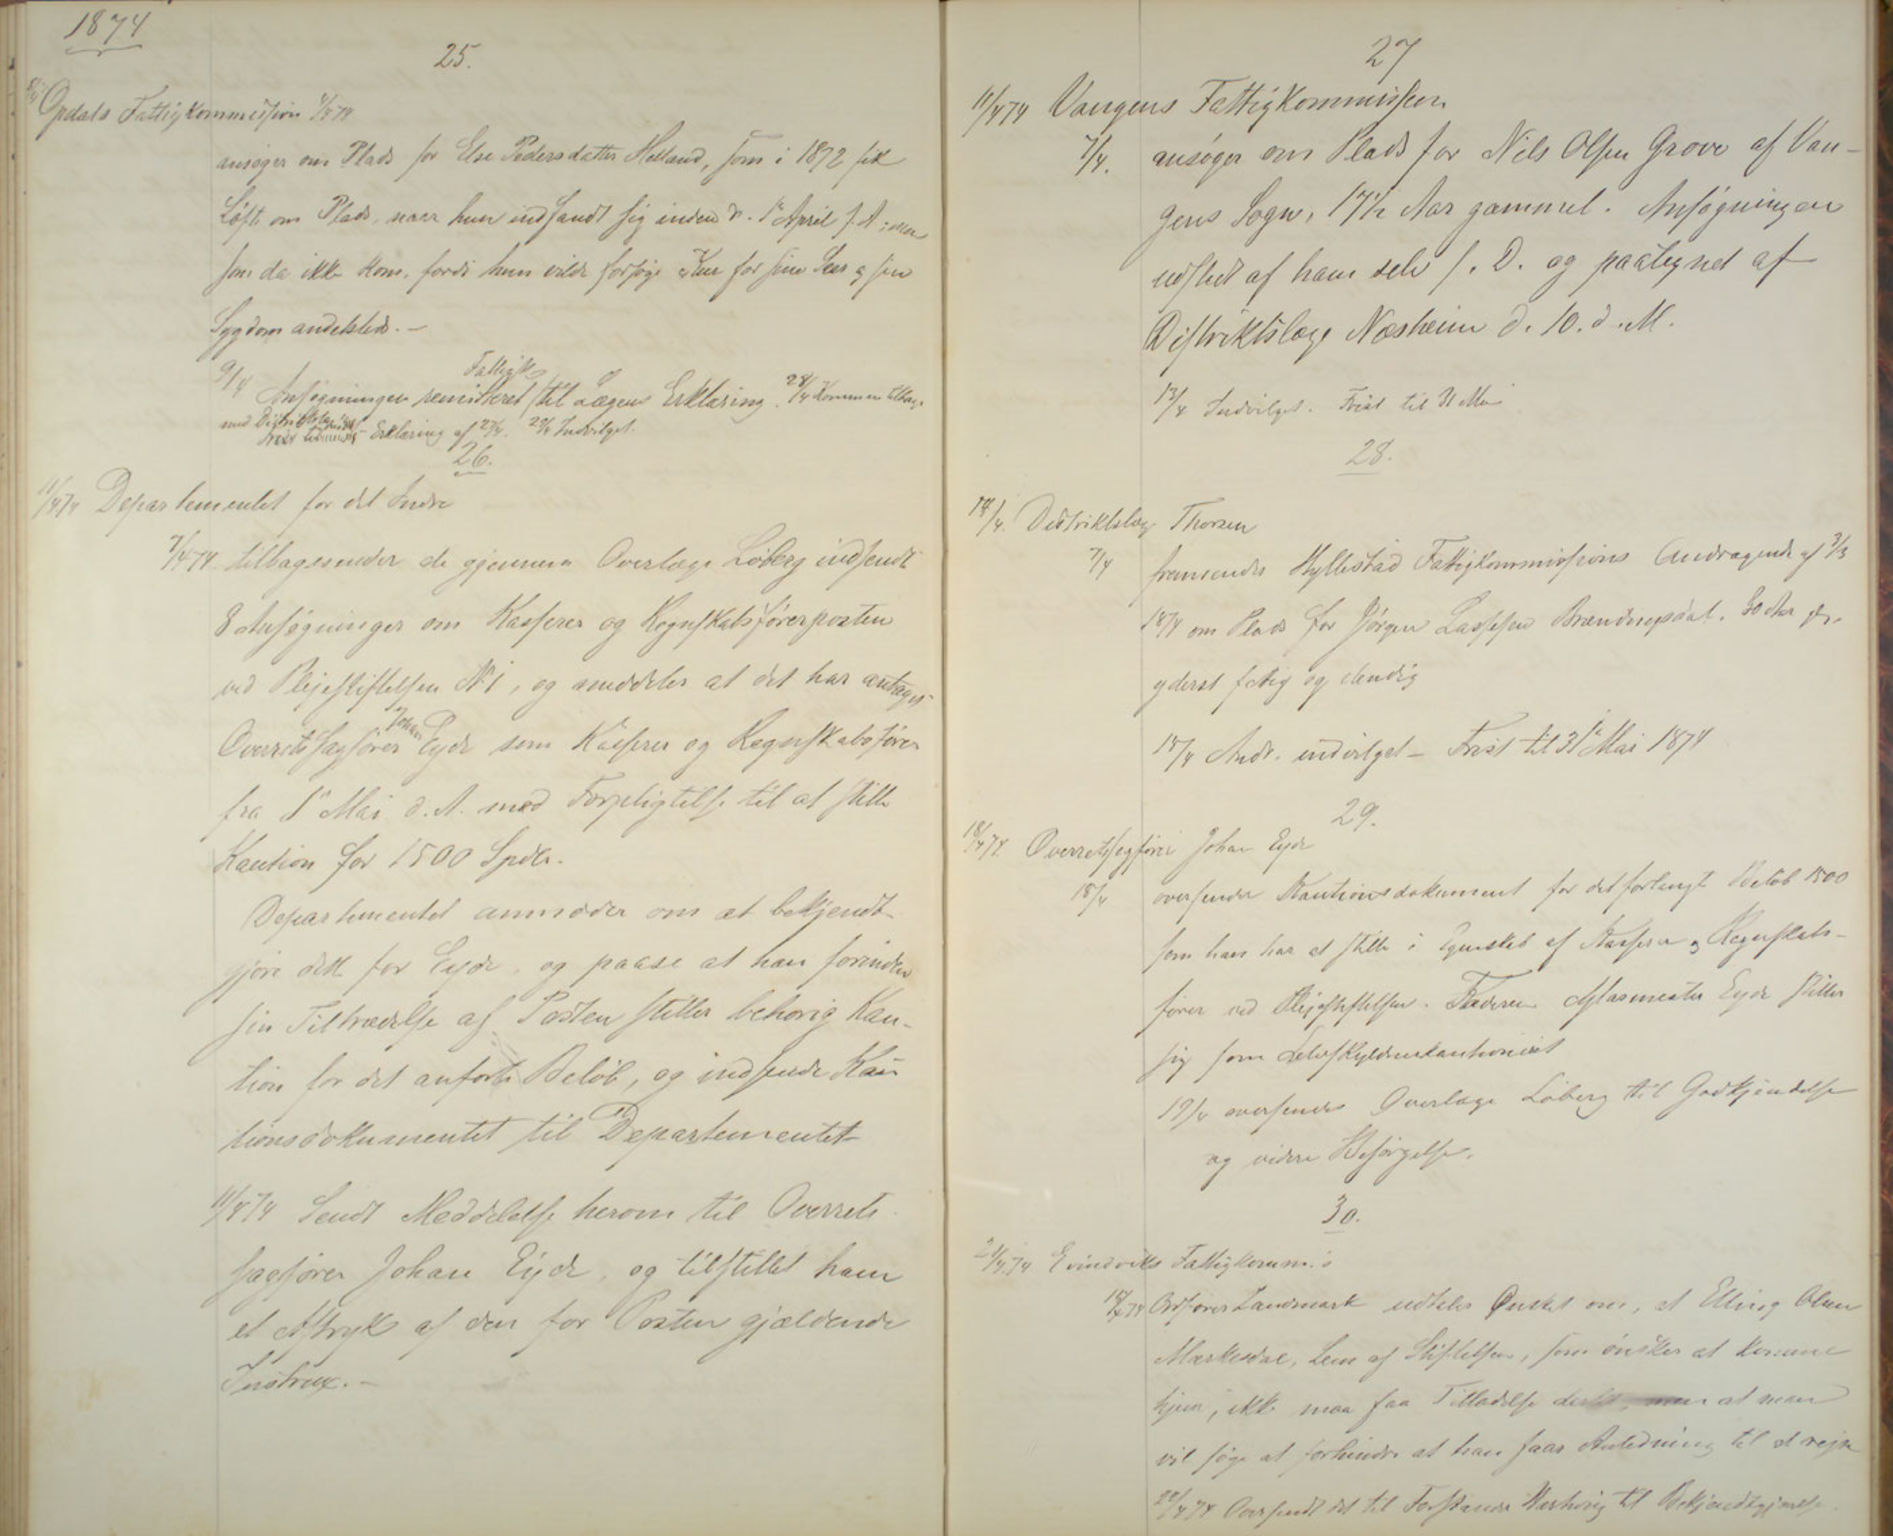 1874
25.
Opdals Fattigkommission 4/4 74
ansøger om Plads for Else Pedersdatter Helland, som i 1872 fik
Løfte om Plads, naar hun indfandt sig inden d. 1ste April s. A; men
som da ikke kom, fordi hun vilde forsøge Kur for sine Saar og sin
Sygdom andetsteds. —
9/4 Ansøgningen remitteret Fattigk. til Lægens Erklæring. 28/4 Kommen tilbage
med Distriktslæge Erklæring af 27/4. 29/4 Indvilget.
26.
11/4 74 Departementet for det Indre
7/4 74 tilbagesender de gjennem Overlæge Løberg indsendte
8 Ansøgninger om Kasserer og Regnskabsførerposten
ved Plejestiftelsen No 1, og meddeler at det har antaget
Overretssagfører Johan Eyde som Kasserer og Regnskabsfører
fra 1ste Mai d. A. med Forpligtelse til at stille
Kaution for 1500 Spdlr.
Departementet anmoder om at bekjendt-
gjøre dette for Eyde, og paase at han forinden
sin Tiltrædelse af Posten stiller behørig Kau-
tion for det anførte Beløb, og indsende Kau-
tionsdokumentet til Departementet
11/4 74 Sendt Meddelelse herom til Overrets-
sagfører Johan Eyde, og tilstillet ham
et Aftryk af den for Posten gjældende
Instrux. —
27
11/4 74 Vangens Fattigkommission
7/4. ansøger om Plads for Nils Olsen Grove af Van-
gens Sogn, 17½ Aar gammel. Ansøgningen
udstedt af ham selv s. D. og paategnet af
Distriktslæge Næsheim d. 10. d. M.
13/4 Indvilget. Frist til 31 Mai
28.
14/4. Distriktslæge Thorsen
7/4 fremsender Hyllestad Fattigkommissions Andragende af 3/3
1874 om Plads for Jørgen Lassesen Brændingsdal. 30 Aar gl.
yderst fattig og elendig
15/4 Andr. indvilget — Frist til 31te Mai 1874
29.
18/4 74. Overretssagfører Johan Eyde
15/4 oversender Kautionsdokument for det forlangte Beløb 1500
som han har at stille i Egenskab af Kasserer og Regnskabs-
fører ved Plejestiftelsen. Faderen Glasmester Eyde stiller
sig som Selvskyldnerkautionist
19/4 oversendes Overlæge Løberg til Godkjendelse
og videre Besørgelse.
30.
21/4 74 Evindviks Fattigkomm.s
18/4 74 Ordfører Landmark udtaler Ønsket om, at Elling Olsen
Mærkesdal, Lem af Stiftelsen, som ønsker at komme
hjem, ikke maa faa Tilladelse dertil, men at man
vil søge at forhindre at han faar Anledning til at rejse
22/4 74 Oversendt det til Forstander til Bekjendtgjørelse.